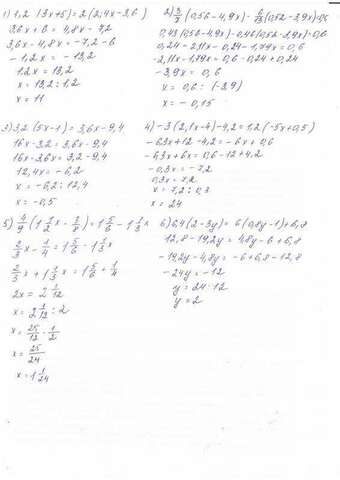 1) 1,2 (3x+5) = 2(2,4x-3,6)
3,6x+6 = 4,8x-7,2
3,6x-4,8x = -7,2-6
-1,2x = -13,2
1,2x = 13,2
x = 13,2:1,2
x = 11
2) 3/7 (0,56-4,9x) - 6/13 (0,52-3,9x)=0,6
0,43(0,56-4,9x)-0,46(0,52-1,9x)=0,6
0,24-2,11x-0,24-1,79x=0,6
-2,11x-1,79x=0,6-0,24+0,24
-3,9x = 0,6
x = 0,6 : (-3,9)
x = -0,15
3) 3,2 (5x-1) = 3,6x-9,4
16x-3,2 = 3,6x-9,4
16x-3,6x = 3,2-9,4
12,4x = -6,2
x = -6,2:12,4
x = -0,5
4) -3(2,1x-4)-4,2=1,2(-5x+0,5)
-6,3x+12-4,2=-6x+0,6
-6,3x+6x=0,6-12+4,2
-0,3x=-7,2
0,3x=7,2
x=7,2:0,3
x=24
5) 4/9 (1 1/2 x - 3/8) = 1 5/6 - 1 1/3 x
2/3 x - 1/4 = 1 5/6 - 1 1/3 x
2/3 x + 1 1/3 x = 1 5/6 + 1/4
2x = 2 1/12
x = 2 1/12 : 2
x = 25/12 · 1/2
x = 25/24
x = 1 1/24
6) 6,4(2-3y) = 6(0,8y-1)+6,8
12,8-19,2y = 4,8y-6+6,8
-19,2y-4,8y = -6+6,8-12,8
-24y = -12
y = 24·12
y = 2